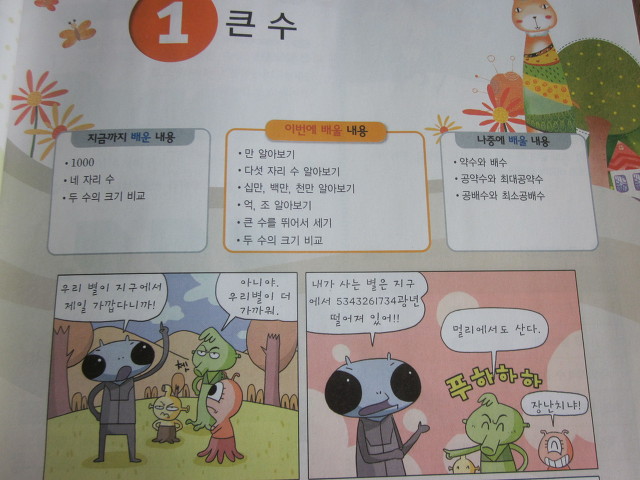 1 큰 수
지금까지 배운 내용
• 1000
• 네 자리 수
• 두 수의 크기 비교
이번에 배울 내용
• 만 알아보기
• 다섯 자리 수 알아보기
• 십만, 백만, 천만 알아보기
• 억, 조 알아보기
• 큰 수를 뛰어서 세기
• 두 수의 크기 비교
나중에 배울 내용
• 약수와 배수
• 공약수와 최대공약수
• 공배수와 최소공배수
우리 별이 지구에서
제일 가깝다니까!
아니야.
우리별이 더
가까워.
헨
내가 사는 별은 지구
에서 5343261734광년
떨어져 있어!!
멀리에서도 산다.
푸하하하
장난치냐!